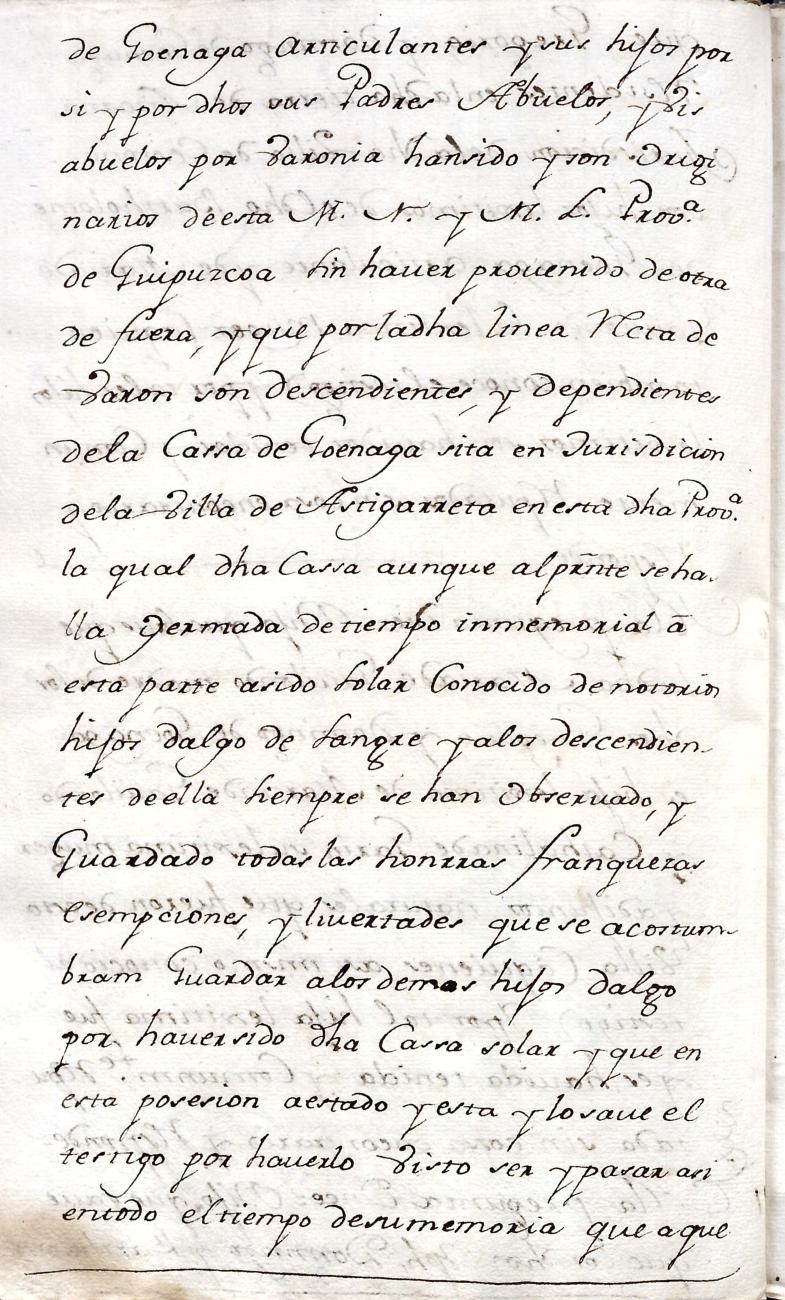 de Goenaga articulantes y sus hijos por
si y por dhos sus Padres Abuelos, y Vis
abuelos por Varonia han sido y son Origi
narios de esta M. N. y M. L. Prov.ª
de Guipuzcoa sin haver provenido de otra
de fuera, y que por la dha linea Recta de
Varon son descendientes, y dependientes
de la Cassa de Goenaga sita en Jurisdicion
de la Villa de Astigarreta en esta dha Prov.ª
la qual dha Cassa aunque al pr̃nte se ha-
lla Yermada de tiempo inmemorial ã
esta parte asido Solar Conocido de notorios
hijos dalgo de Sangre y alos descendien-
tes de ella siempre se han Observado, y
Guardado todas las honrras franquezas
esempciones, y livertades que se acostum-
bram Guardar alos demas hijos dalgo
por haver sido dha Cassa solar y que en
esta posesion aestado y esta y lo save el
testigo por haverlo Visto ser y pasar asi
en todo el tiempo de su memoria que aque